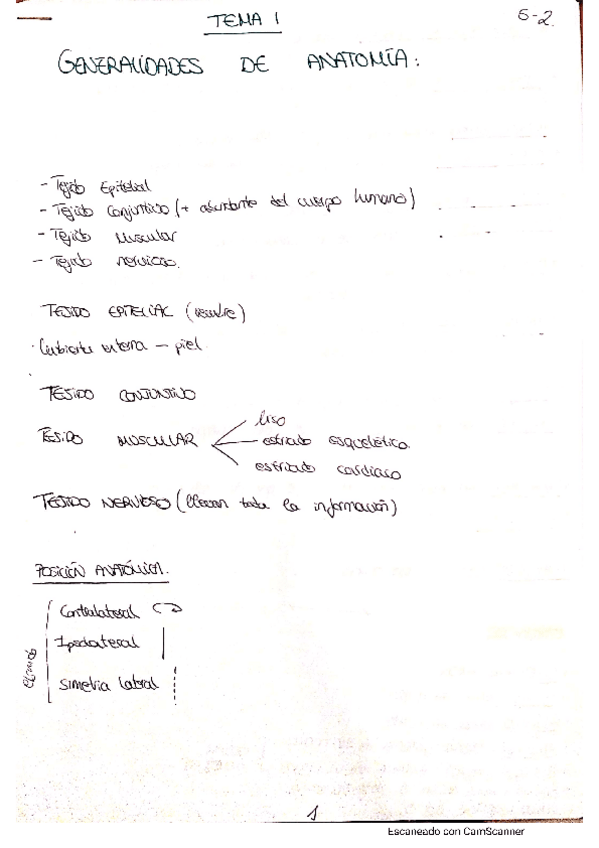 TEMA 1
5-2.
GENERALIDADES DE ANATOMÍA:
- Tejido Epitelial
- Tejido Conjuntivo (+ abundante del cuerpo humano)
- Tejido Muscular
- Tejido nervioso.
TEJIDO EPITELIAL (recubre)
· Cubierta externa - piel
TEJIDO CONJUNTIVO
TEJIDO MUSCULAR
liso
estriado esquelético.
estriado cardiaco
TEJIDO NERVIOSO (llevan toda la información)
POSICIÓN ANATÓMICA.
Contralateral
Ipsolateral
simetria labral
1
Escaneado con CamScanner